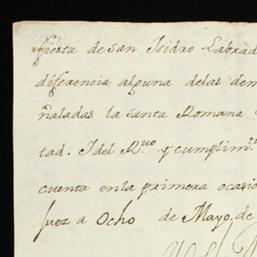 fiesta de San Isidro Labrad
diferencia alguna delas dem
ñaladas la Santa Romana
tad. Idel R.uo y cumplim.to
cuenta enla primera ocasio
Juez a Ocho de Mayo, de